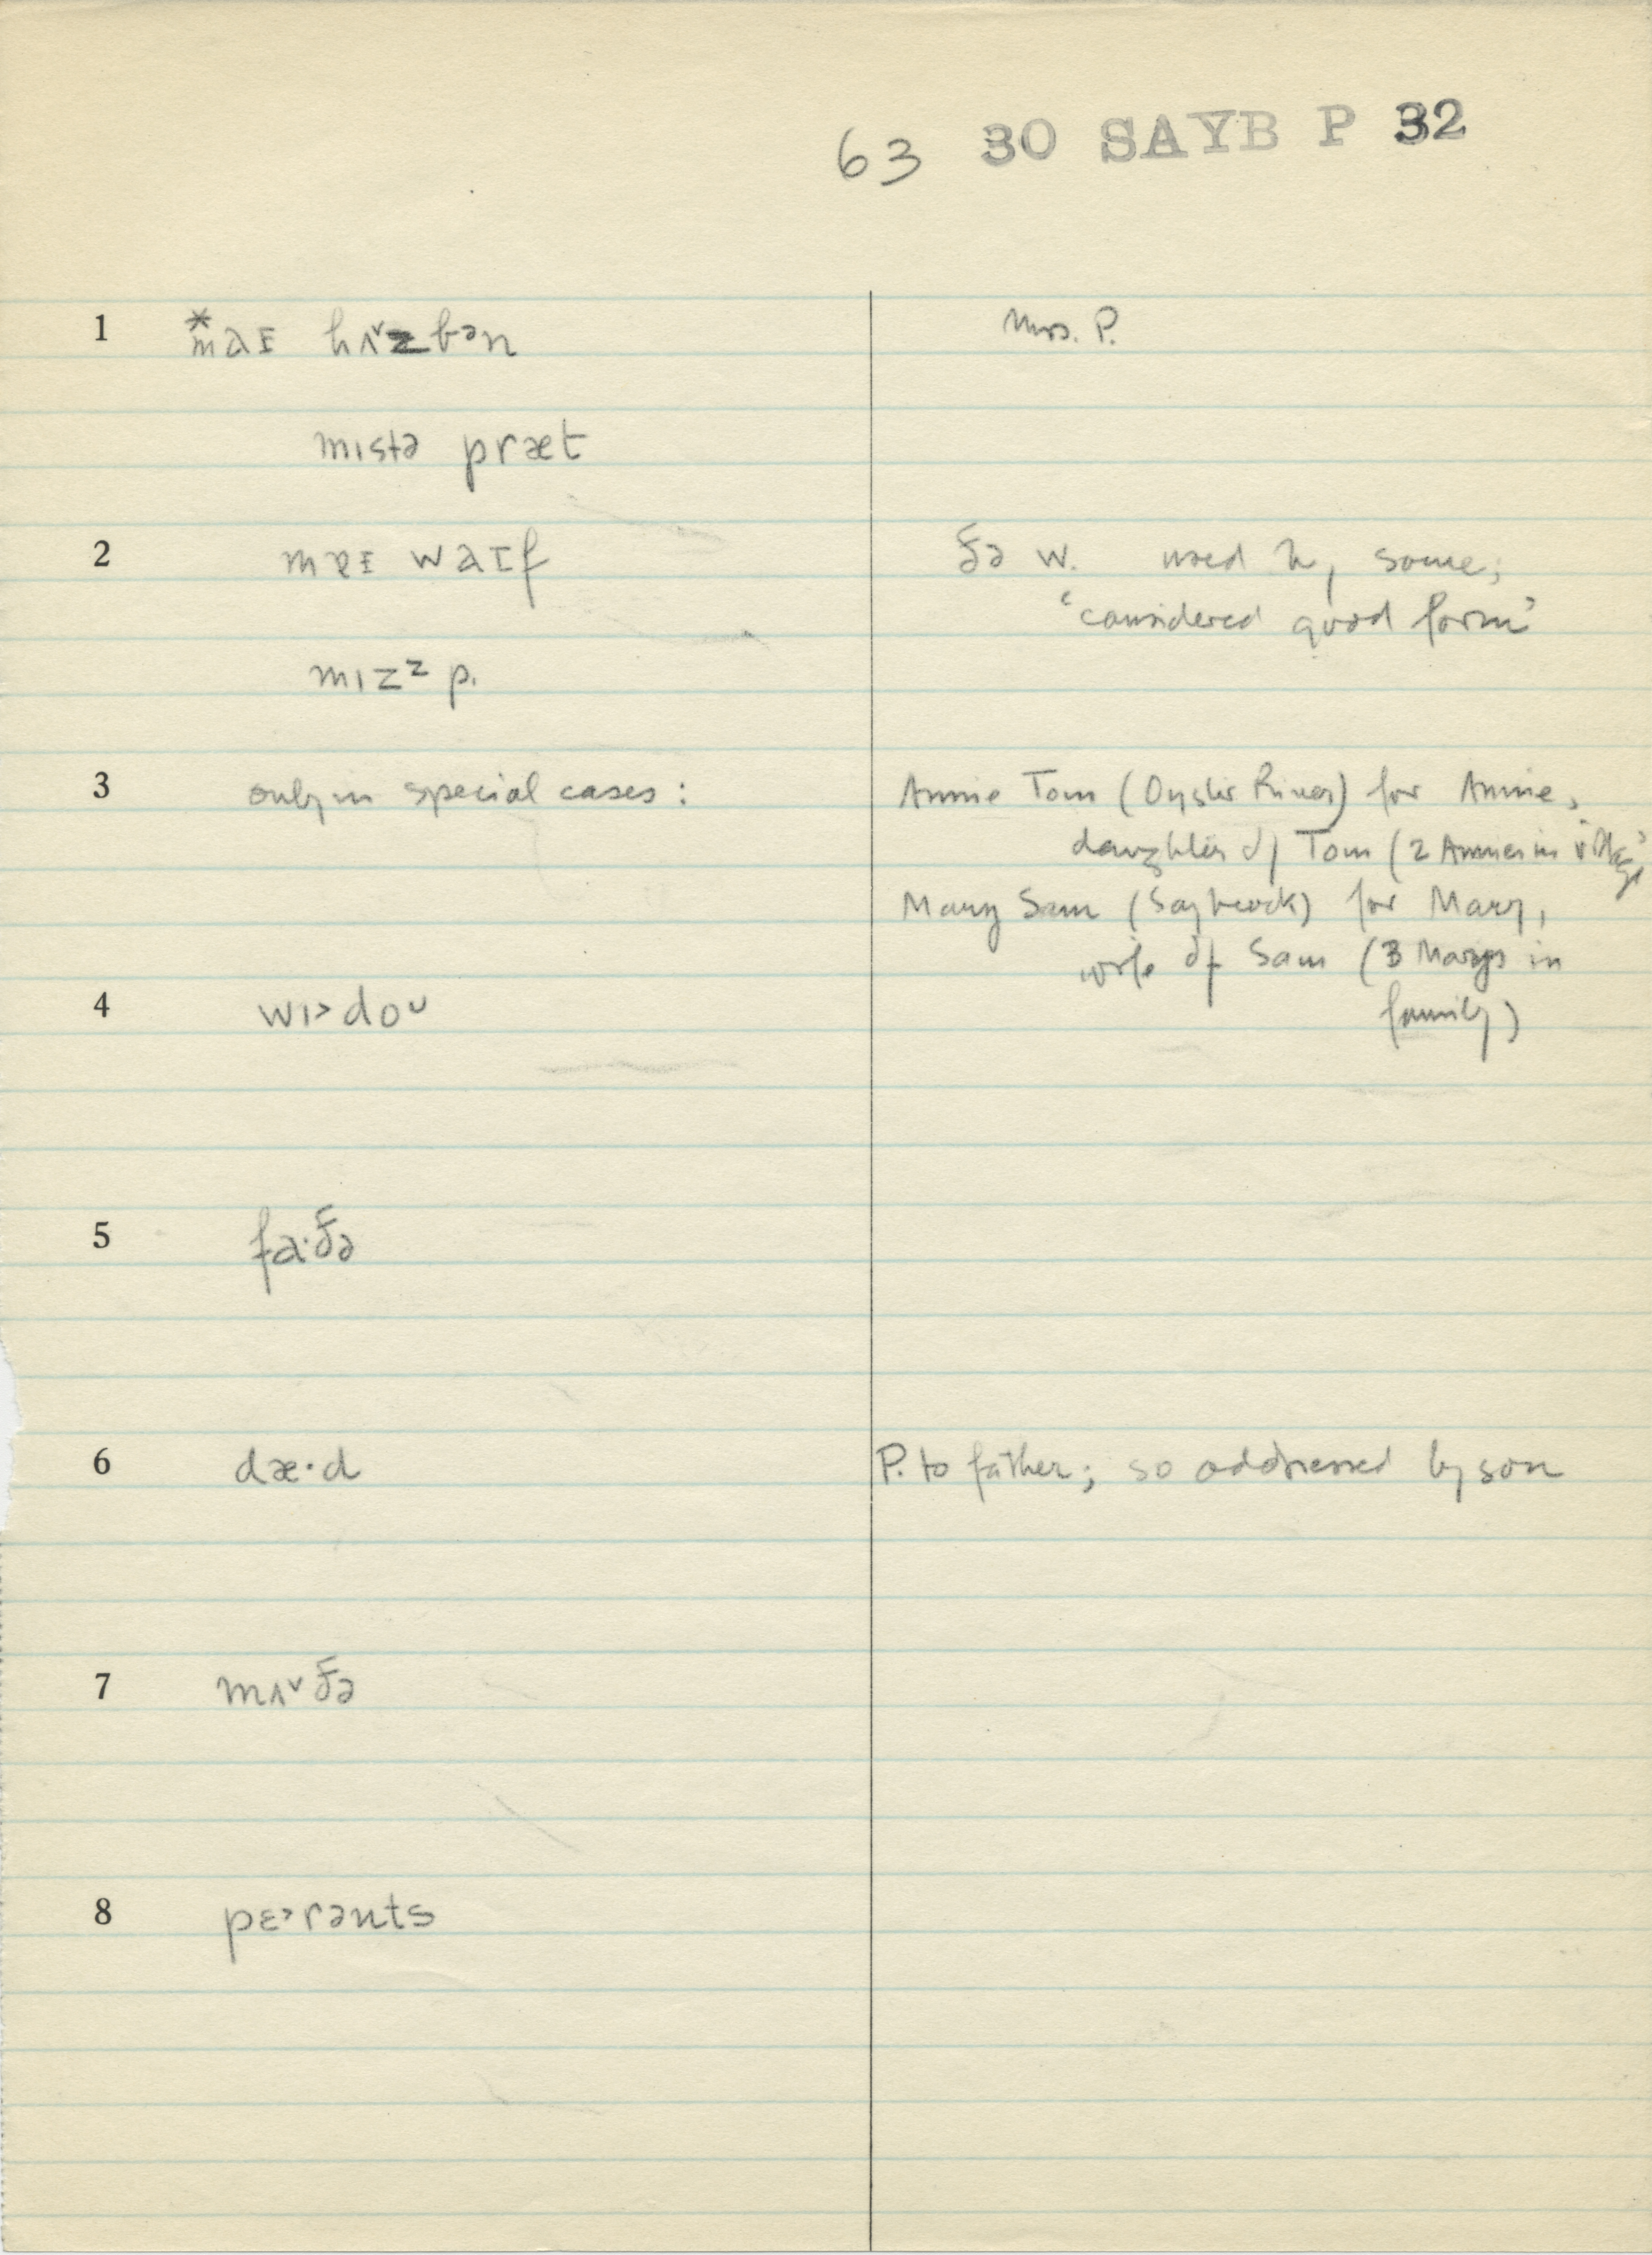 63 30 SAYB P 32
1 *maɪ hʌ˅zbən Mrs. P.
mɪstə præt
2 mɐɪ waɪf ðə w. used by some;
'considered good form'
mɪzᶻ p.
3 only in special cases: Annie Tom (Oyster River) for Annie,
daughter of Tom (2 Annies in village)
Mary Sam (Saybrook) for Mary,
wife of Sam (3 Marys in
4 wɪ>doᴜ family)
5 fa·ðə
6 dæ·d P. to father; so addressed by son
7 mʌ˅ðə
8 pɛ>rənts